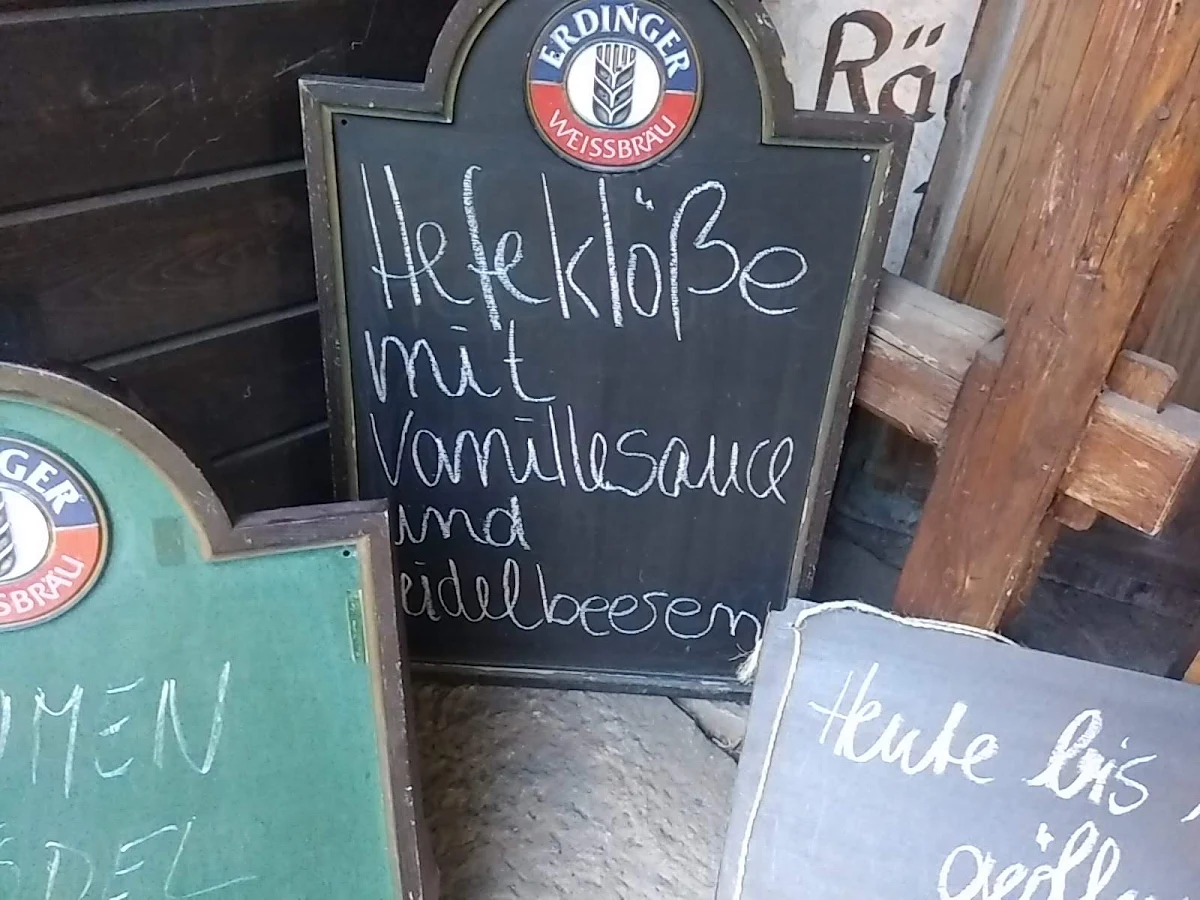 ERDINGER
WEISSBRÄU
Rä
Hefeklöße
mit
Vanillesauce
und
eidelbeesen
GER
SBRÄU
MEN
DEL
Heute bis
geöff